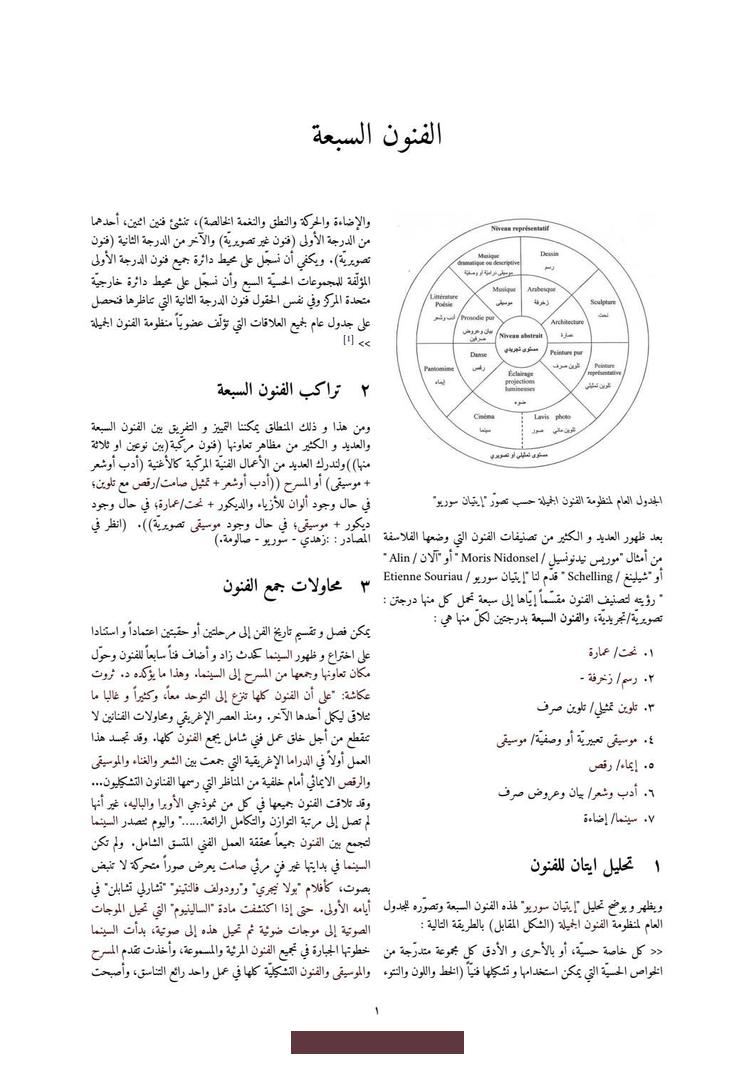 الفنون السبعة
Niveau représentatif
Dessin
رسم
Musique
dramatique ou descriptive
موسيقى دراميّة أو وصفيّة
Musique
موسيقى
Arabesque
زخرفة
Sculpture
نحت
Littérature
Poésie
أدب وشعر
Prosodie pur
بيان وعروض
صرفين
Architecture
عمارة
Niveau abstrait
مستوى تجريدي
Pantomime
إيماء
Danse
رقص
Peinture pur
تلوين صرف
Peinture
représentative
تلوين تمثيلي
Éclairage
projections
lumineuses
ضوء
Cinéma
سينما
Lavis photo
تلوين مائي صور
مستوى تمثيلي أو تصويري
الجدول العام لمنظومة الفنون الجميلة حسب تصوّر "إيتيان سوريو"
بعد ظهور العديد و الكثير من تصنيفات الفنون التي وضعها الفلاسفة
من أمثال "موريس نيدونسيل / Moris Nidonsel " أو "آلان / Alin "
أو "شيلينغ / Schelling " قدّم لنا "إيتيان سوريو / Etienne Souriau
" رؤيته لتصنيف الفنون مقسّماً إيّاها إلى سبعة تحمل كل منها درجتن :
تصويريّة/تجريديّة، والفنون السبعة بدرجتين لكلّ منها هي :
١. نحت/ عمارة
٢. رسم/ زخرفة -
٣. تلوين تمثيلي/ تلوين صرف
٤. موسيقى تعبيريّة أو وصفيّة/ موسيقى
٥. إيماء/ رقص
٦. أدب وشعر/ بيان وعروض صرف
٧. سينما/ إضاءة
١ تحليل ايتان للفنون
ويظهر و يوضح تحليل "إيتيان سوريو" لهذه الفنون السبعة وتصوّره للجدول
العام لمنظومة الفنون الجميلة (الشكل المقابل) بالطريقة التالية :
<< كل خاصة حسيّة، أو بالأحرى و الأدق كل مجموعة متدرّجة من
الخواص الحسيّة التي يمكن استخدامها و تشكيلها فنيّاً (الخط واللون والنتوء
والإضاءة والحركة والنطق والنغمة الخالصة)، تنشئ فنين اثنين، أحدهما
من الدرجة الأولى (فنون غير تصويريّة) والآخر من الدرجة الثانية (فنون
تصويريّة). ويكفي أن نسجّل على محيط دائرة جميع فنون الدرجة الأولى
المؤلّفة للمجموعات الحسيّة السبع وأن نسجّل على محيط دائرة خارجيّة
متحدة المركز وفي نفس الحقول فنون الدرجة الثانية التي تناظرها فنحصل
على جدول عام لجميع العلاقات التي تؤلّف عضويّاً منظومة الفنون الجميلة
>> [1]
٢ تراكب الفنون السبعة
ومن هذا و ذلك المنطلق يمكننا التمييز و التفريق بين الفنون السبعة
والعديد و الكثير من مظاهر تعاونها (فنون مركّبة(بين نوعين او ثلاثة
منها))ولندرك العديد من الأعمال الفنيّة المركّبة كالأغنية (أدب أوشعر
+ موسيقى) أو المسرح ((أدب أوشعر + تمثيل صامت/رقص مع تلوين؛
في حال وجود ألوان للأزياء والديكور + نحت/عمارة؛ في حال وجود
ديكور + موسيقى؛ في حال وجود موسيقى تصويريّة)). (انظر في
المصادر : :زهدي - سوريو - صالومة.)
٣ محاولات جمع الفنون
يمكن فصل و تقسيم تاريخ الفن إلى مرحلتين أو حقبتين اعتماداً و استنادا
على اختراع و ظهور السينما كحدث زاد و أضاف فناً سابعاً للفنون وحوّل
مكان تعاونها وجمعها من المسرح إلى السينما. وهذا ما يؤكده د. ثروت
عكاشة: "على أن الفنون كلها تنزع إلى التوحد معاً، وكثيراً و غالبا ما
تتلاقى ليكمل أحدها الآخر. ومنذ العصر الإغريقي ومحاولات الفنانين لا
تنقطع من أجل خلق عمل فني شامل يجمع الفنون كلها. وقد تجسد هذا
العمل أولاً في الدراما الإغريقية التي جمعت بين الشعر والغناء والموسيقى
والرقص الايمائي أمام خلفية من المناظر التي رسمها الفنانون التشكيليون...
وقد تلاقت الفنون جميعها في كل من نموذجي الأوبرا والباليه، غير أنها
لم تصل إلى مرتبة التوازن والتكامل الرائعة......" واليوم تتصدر السينما
لتجمع بين الفنون جميعاً محققة العمل الفني المتسق الشامل. ولم تكن
السينما في بدايتها غير فنٍ مرئي صامت يعرض صوراً متحركة لا تنبض
بصوت، كأفلام "بولا نيجري" و"رودولف فالنتينو" "تشارلي تشابلن" في
أيامه الأولى. حتى إذا اكتشفت مادة "السالينيوم" التي تحيل الموجات
الصوتية إلى موجات ضوئية ثم تحيل هذه إلى صوتية، بدأت السينما
خطوتها الجبارة في تجميع الفنون المرئية والمسموعة، وأخذت تقدم المسرح
والموسيقى والفنون التشكيليّة كلها في عمل واحد رائع التناسق، وأصبحت
١